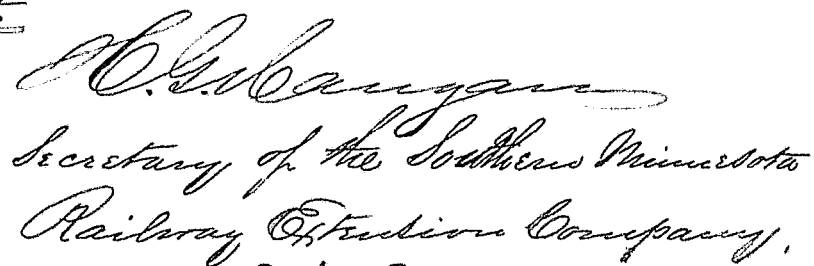 H. G. Haugan
Secretary of the Southern Minnesota
Railway Extention Company,